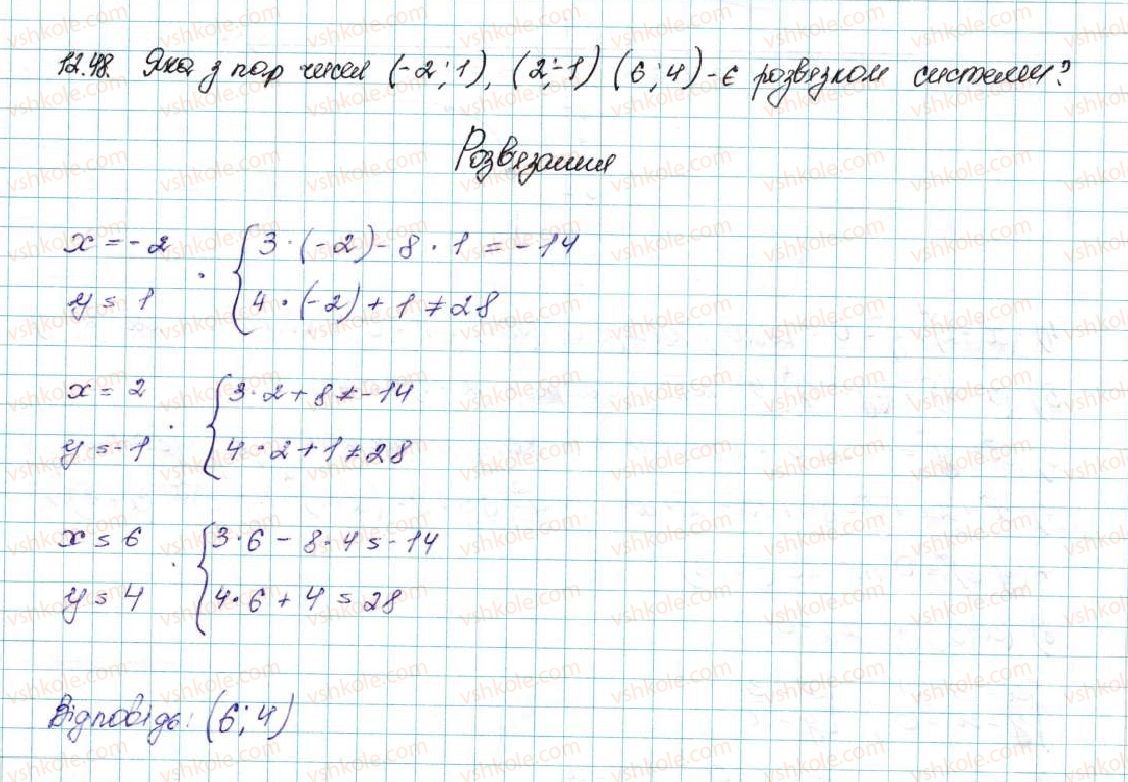 12.48. Яка з пар чисел (-2; 1), (2; -1) (6; 4) - є розвязком системи?
Розвязання
x = -2
y = 1
3 · (-2) - 8 · 1 = -14
4 · (-2) + 1 ≠ 28
x = 2
y = -1
3 · 2 + 8 ≠ -14
4 · 2 + 1 ≠ 28
x = 6
y = 4
3 · 6 - 8 · 4 = -14
4 · 6 + 4 = 28
Відповідь: (6; 4)